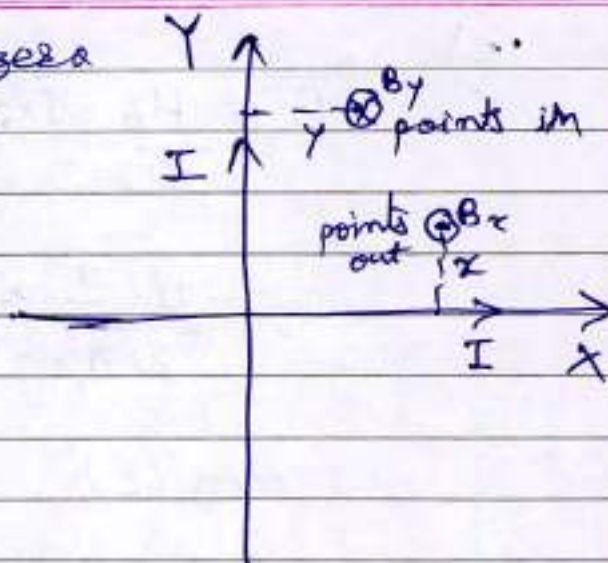 zero Y
By
Y points in
I
points Bx
out x
I X